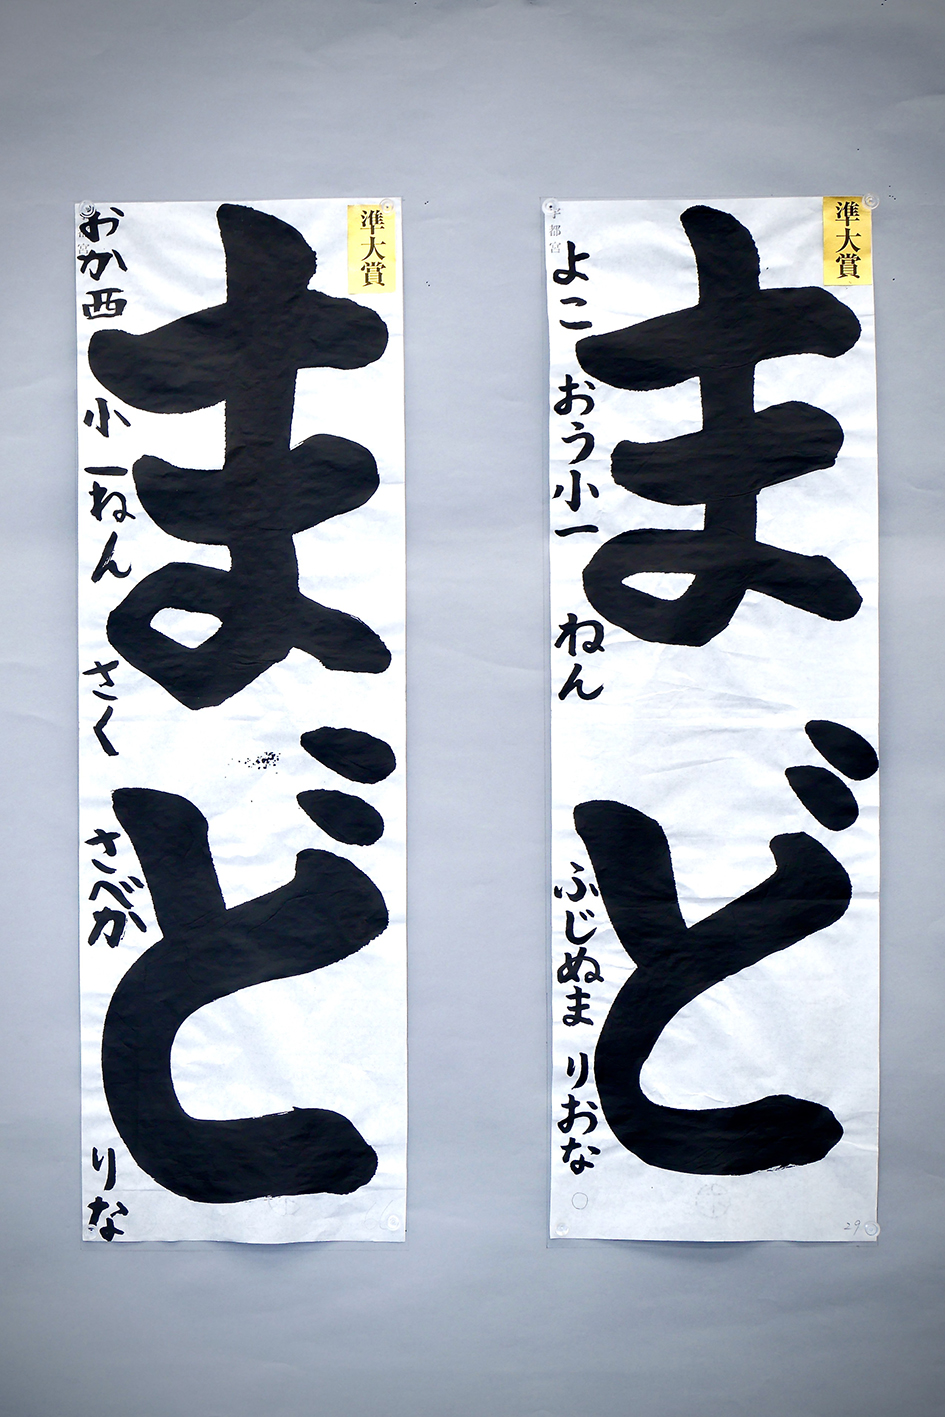 準大賞
まど
おか西小一ねん さく さべか りな
準大賞
まど
宇都宮
よこおう小一ねん ふじぬま りおな
29